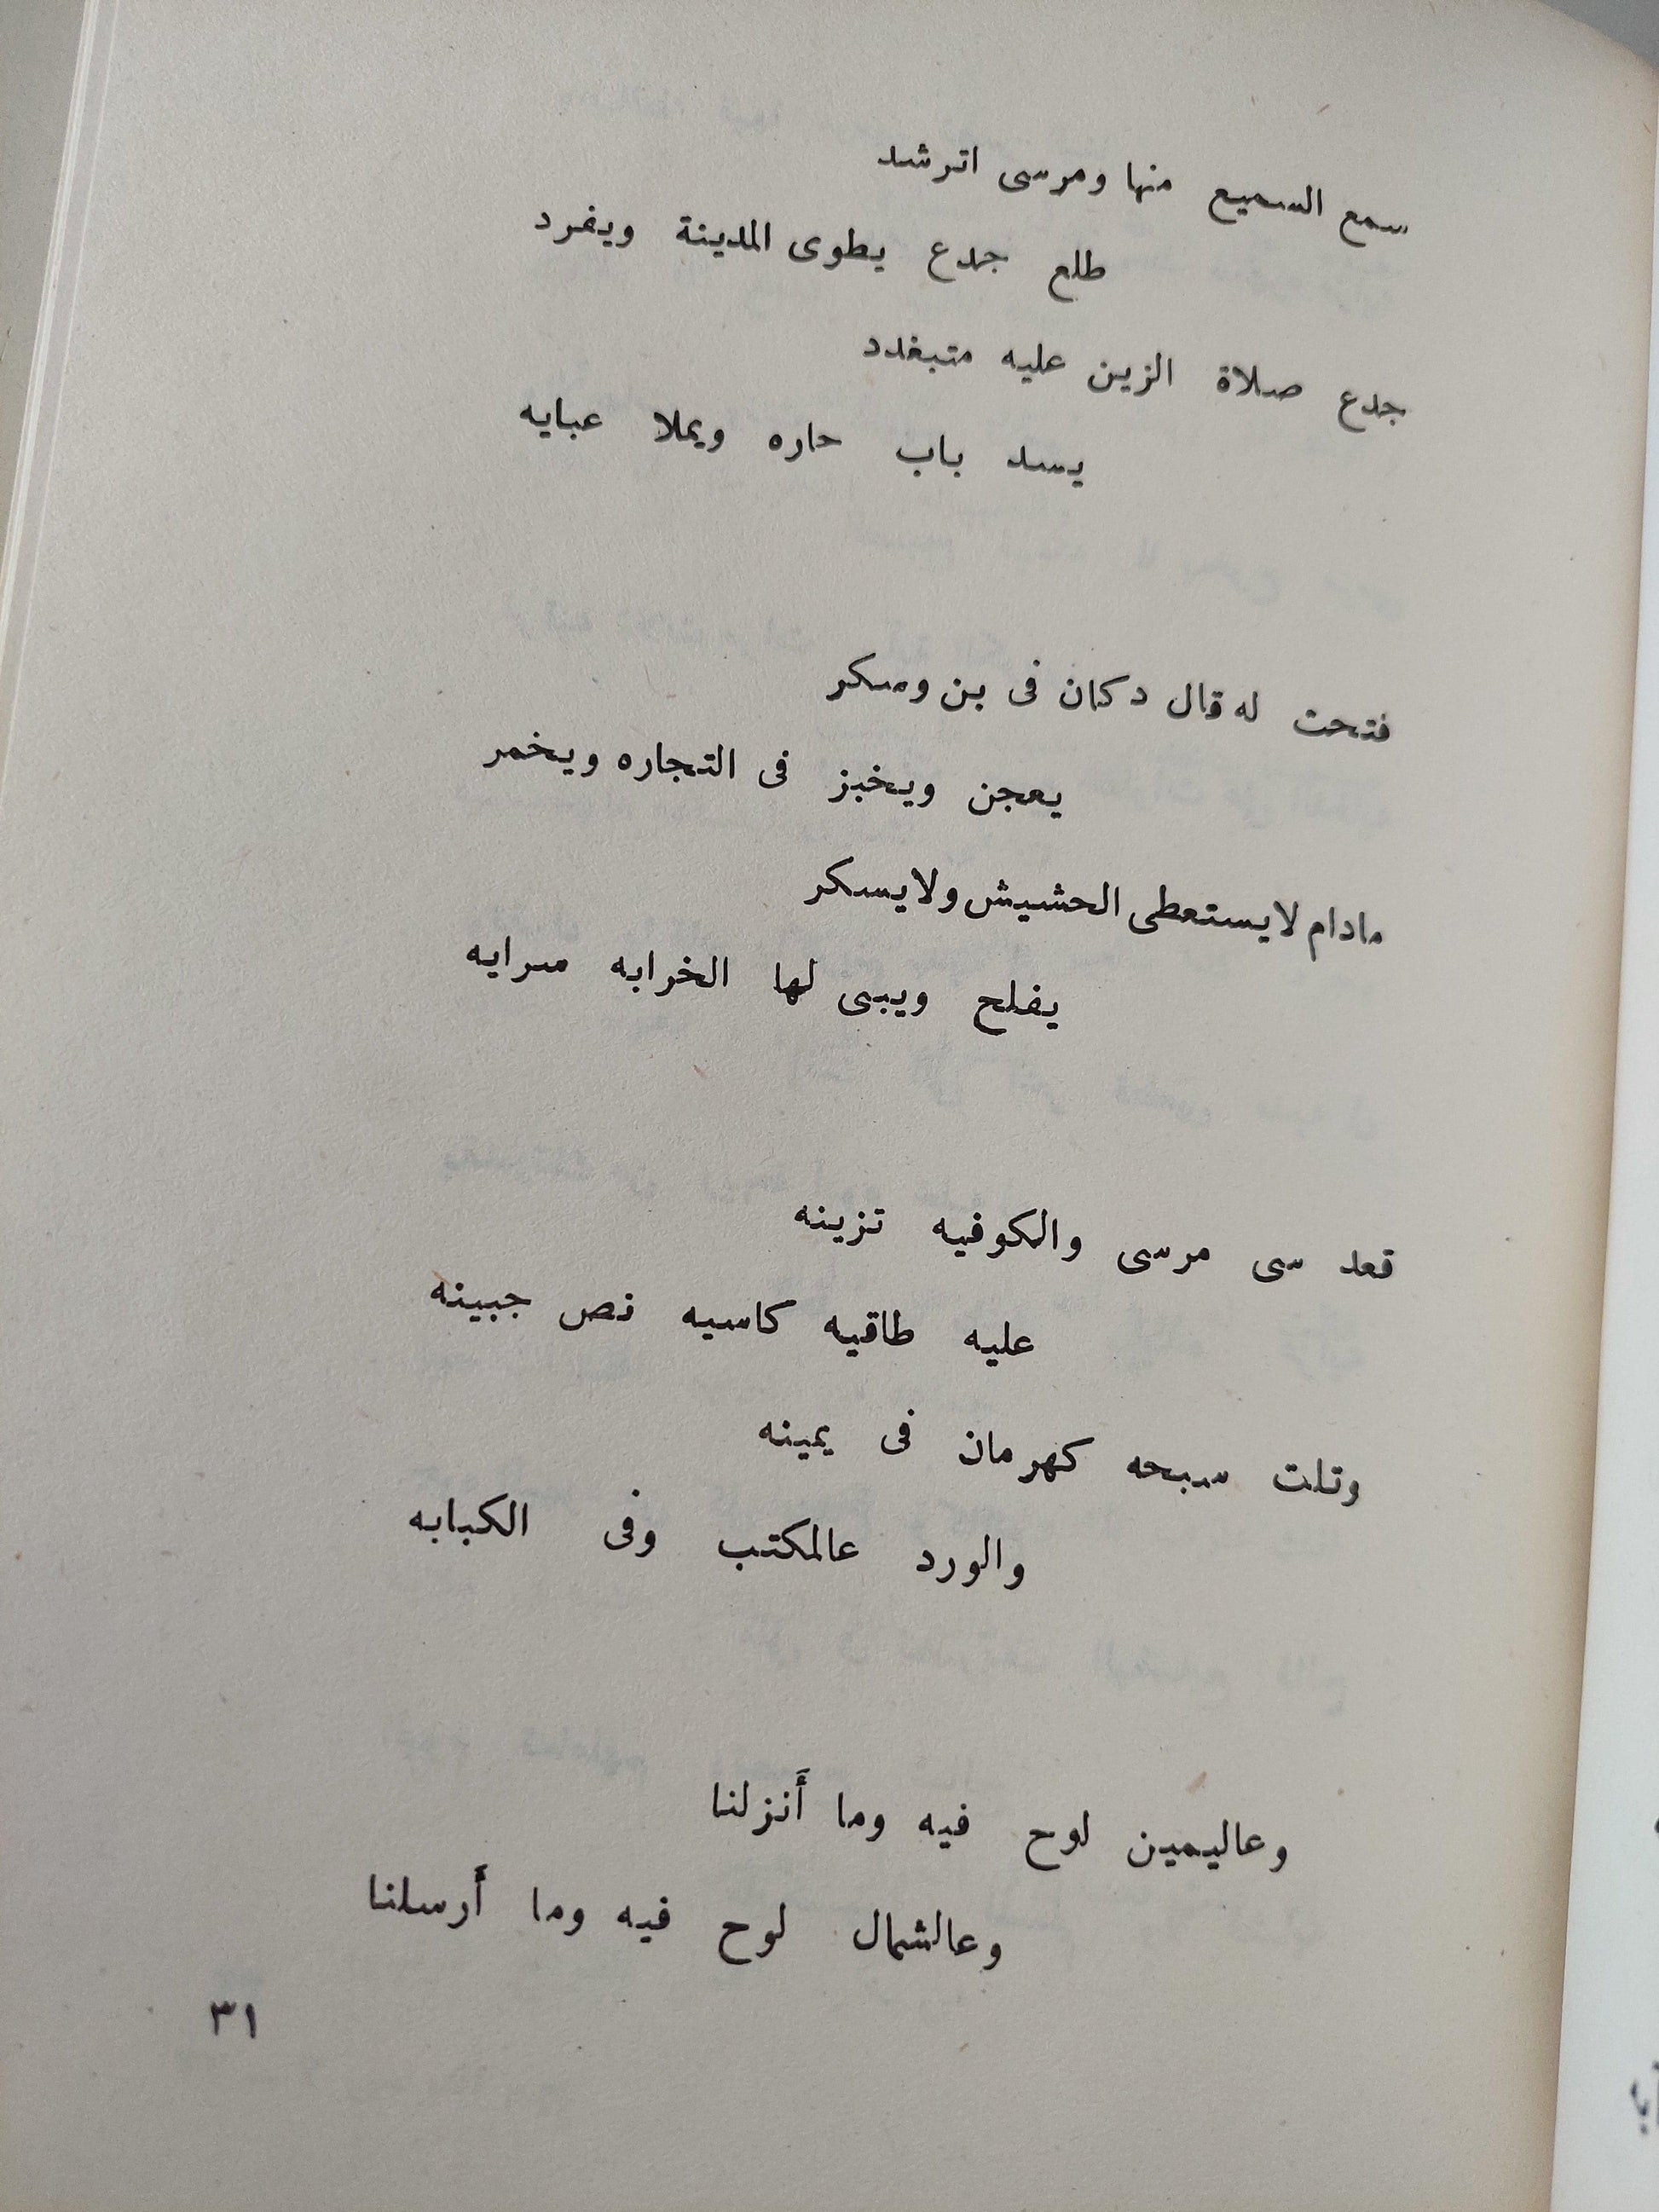 سمع السميع منها ومرسى اترشد
طلع جدع يطوى المدينة ويفرد
جدع صلاة الزين عليه متبغدد
يسد باب حاره ويملا عبايه
فتحت له قال دكان فى بن وسكر
يعجن ويخبز فى التجاره ويخمر
مادام لايستعطى الحشيش ولايسكر
يفلح ويبى لها الخرابه سرايه
قعد سى مرسى والكوفيه تزينه
عليه طاقيه كاسيه نص جبينه
وتلت سبحه كهرمان فى يمينه
والورد عالمكتب وفى الكبابه
وعاليمين لوح فيه وما أَنزلنا
وعالشمال لوح فيه وما أَرسلنا
٣١